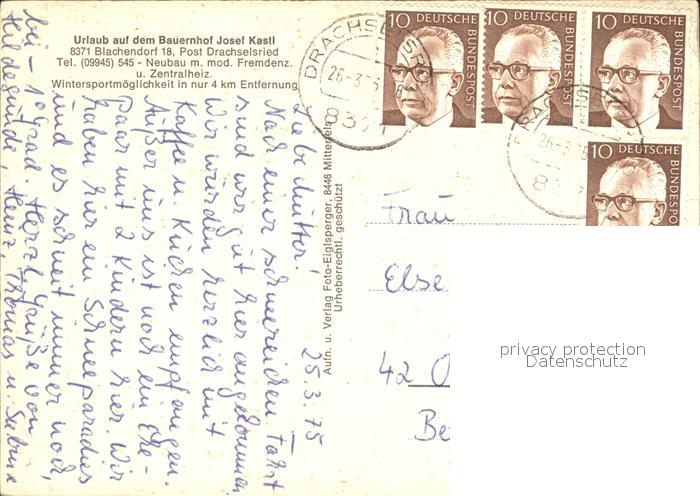 Urlaub auf dem Bauernhof Josef Kastl
8371 Blachendorf 18, Post Drachselsried
Tel. (09945) 545 - Neubau m. mod. Fremdenz.
u. Zentralheiz.
Wintersportmöglichkeit in nur 4 km Entfernung
25.3.75
Liebe Mutter!
Nach einer schneereichen Fahrt
sind wir gut hier angekommen.
Wir wurden herzlich mit
Kaffee u. Kuchen empfangen.
Außer uns ist noch ein Ehe-
paar mit 2 Kindern hier. Wir
haben hier ein Schneeparadies
und es schneit immer noch,
bei - 1° Grad. Herzl. Grüße von
Hildegunde, Heinz, Thomas u. Sabine
Aufn. u. Verlag Foto-Eiglsperger, 8446 Mitterfels
Urheberrechtl. geschützt
10 DEUTSCHE BUNDESPOST
10 DEUTSCHE BUNDESPOST
10 DEUTSCHE BUNDESPOST
10 DEUTSCHE BUNDESPOST
DRACHSELSR
26-3.75
837
26-3.75
8
Frau
Else
42 O
Be
privacy protection
Datenschutz